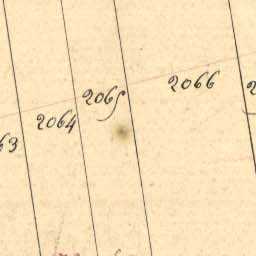 2066
2065
2064
63